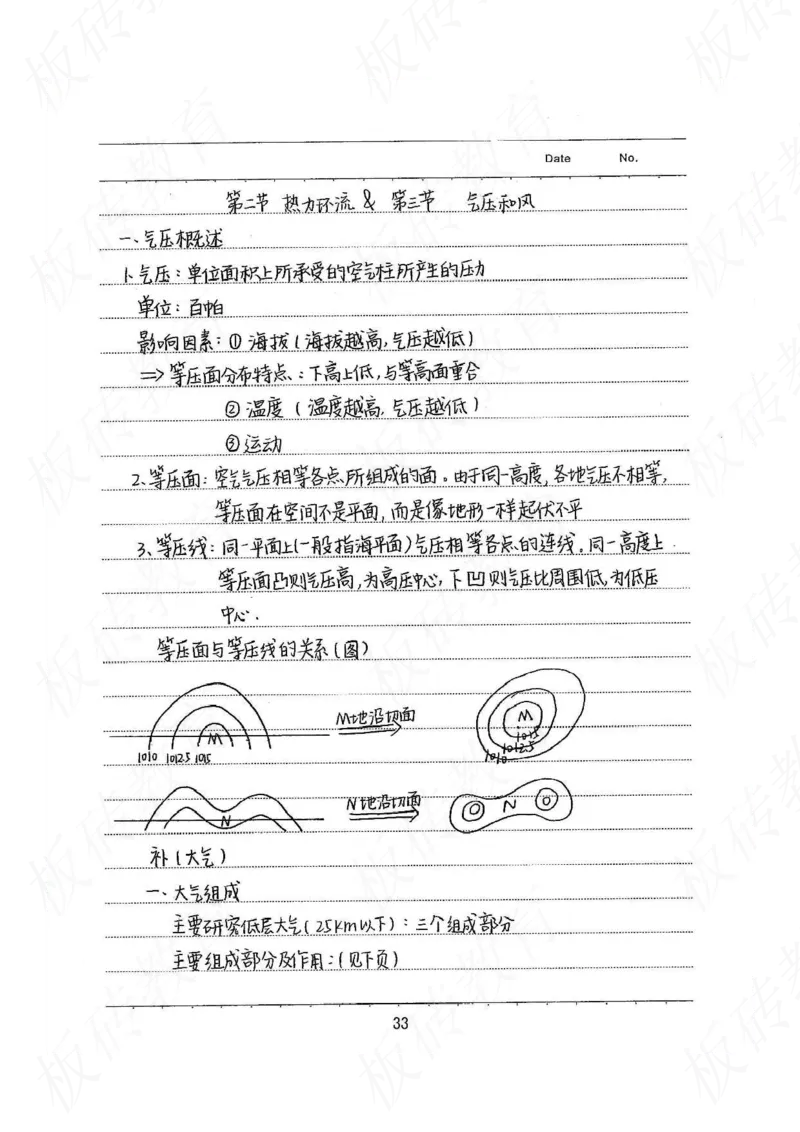 Date No.
第二节 热力环流 & 第三节 气压和风
一、气压概述
1、气压：单位面积上所承受的空气柱所产生的压力
单位：百帕
影响因素：① 海拔（海拔越高，气压越低）
=> 等压面分布特点：下高上低，与等高面重合
② 温度（温度越高，气压越低）
③ 运动
2、等压面：空气气压相等各点所组成的面。由于同一高度，各地气压不相等，
等压面在空间不是平面，而是像地形一样起伏不平
3、等压线：同一平面上(一般指海平面)气压相等各点的连线。同一高度上
等压面凸则气压高，为高压中心，下凹则气压比周围低，为低压
中心.
等压面与等压线的关系（图）
M
1010 1012.5 1015
M地沿切面
M
1015
1012.5
1010
N
N地沿切面
N
补（大气）
一、大气组成
主要研究低层大气（25km以下）：三个组成部分
主要组成部分及作用：（见下页）
33
板砖教育